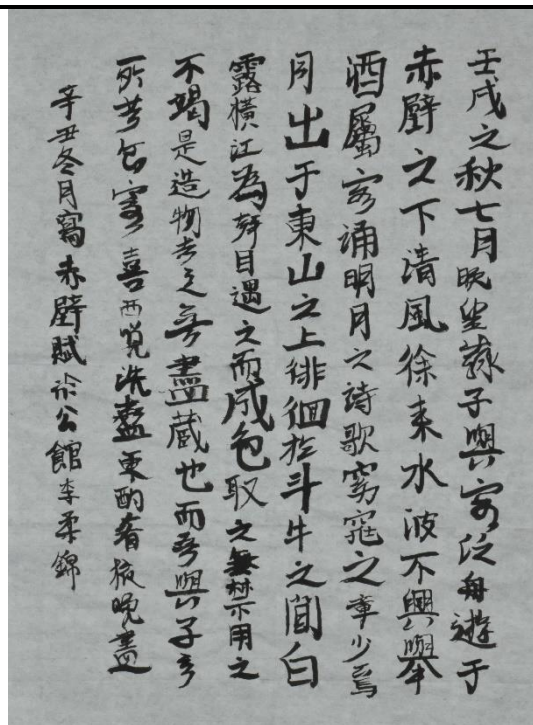 壬戌之秋七月既望蘇子與客泛舟遊于
赤壁之下清風徐來水波不興舉
酒屬客誦明月之詩歌窈窕之章少焉
月出于東山之上徘徊於斗牛之間白
露橫江為 目遇之而成色取之無禁不用之
不竭是造物者之無盡藏也而吾與子
所 客喜而 洗盞更酌肴 盡
辛丑冬月寫赤壁賦 公館李柔錦